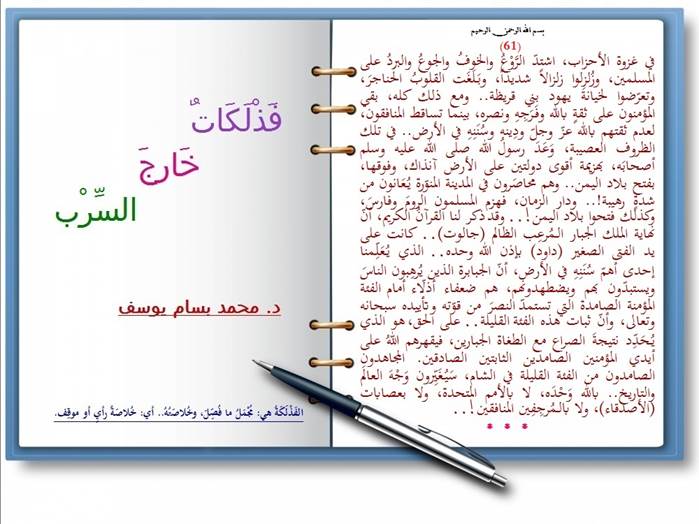 بسم الله الرحمن الرحيم
(61)
في غزوة الأحزاب، اشتدّ الرَّوْعُ والخوفُ والجوعُ والبردُ على
المسلمين، وزُلزِلوا زلزالاً شديداً، وبلَغَت القلوبُ الحناجرَ،
وتعرّضوا لخيانة يهود بني قريظة.. ومع ذلك كله، بقي
المؤمنون على ثقةٍ بالله وفَرَجِهِ ونصرِه، بينما تساقط المنافقون،
لعدم ثقتهم بالله عزّ وجلّ ودِينِهِ وسُنَنِهِ في الأرض.. في تلك
الظروف العصيبة، وَعَدَ رسولُ الله صلى الله عليه وسلم
أصحابَه، بهزيمة أقوى دولتين على الأرض آنذاك، وفوقها،
بفتح بلاد اليمن.. وهم محاصَرون في المدينة المنوّرة يُعَانون من
شدةٍ رهيبة!.. ودار الزمان، فهزم المسلمون الرومَ وفارسَ،
وكذلك فتحوا بلاد اليمن!.. وقد ذكر لنا القرآنُ الكريم، أنّ
نهاية الملك الجبار المُرعِب الظالم (جالوت).. كانت على
يد الفتى الصغير (داود) بإذن الله وحده.. الذي يُعَلِّمنا
إحدى أهمّ سُنَنِهِ في الأرض، أنّ الجبابرة الذين يُرهِبون الناسَ
ويستبدّون بهم ويضطهدونهم، هم ضعفاء أذلّاء أمام الفئة
المؤمنة الصامدة التي تستمدّ النصرَ من قوّته وتأييده سبحانه
وتعالى، وأنّ ثبات هذه الفئة القليلة.. على الحق، هو الذي
يُحَدِّد نتيجةَ الصراع مع الطغاة الجبارين، فيقهرهم اللهُ على
أيدي المؤمنين الصامدين الثابتين الصادقين. المجاهدون
الصامدون من الفئة القليلة في الشام، سَيُغَيِّرون وَجْهَ العالَم
والتاريخ.. بالله وَحْدَه، لا بالأمم المتحدة، ولا بعصابات
(الأصدقاء)، ولا بالمُرجِفِين المنافقين!..
فَذْلَكَاتٌ
خَارِجَ
السِّرْب
د. محمد بسام يوسف
الفَذْلَكَةُ هي: مُجْمَلُ ما فُصِّلَ، وخُلاصَتُهُ.. أي: خُلاصَةُ رأي أو موقِف.